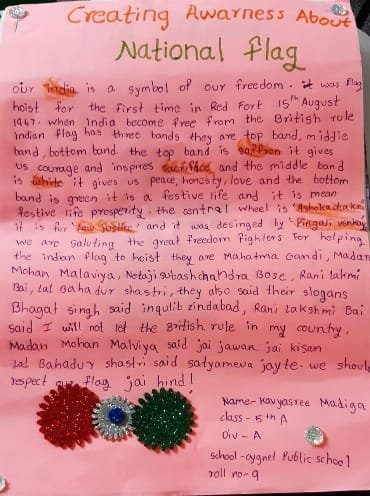 Creating Awarness About
National flag
our india is a symbol of our freedom. it was flag
hoist for the first time in Red Fort 15th August
1947. when india become free from the British rule
Indian flag has three bands they are top band, middle
band, bottom band. the top band is saffron it gives
us courage and inspires sacrifice and the middle band
is white it gives us peace, honesty, love and the bottom
band is green it is a festive life and it is mean
festive life prosperity. the central wheel is "Ashoka chakra
it is for "law justice" and it was desinged by "Pingali venkay
we are saluting the great freedom fighters for helping
the indian flag to hoist they are Mahatma Gandi, Madan
Mohan Malaviya, Netaji subashchandra Bose, Rani Lakmi
Bai, Lal Bahadur shastri, they also said their slogans
Bhagat singh said inqulib zindabad, Rani Lakshmi Bai
said I will not let the British rule in my country,
Madan Mohan Malviya said jai jawan jai kisan
Lal Bahadur shastri said satyameva jayte. we should
respect our flag jai hind!
Name- Kavyasree Madiga
class - 5th A
Div - A
school - cygnet Public school
roll no - 9